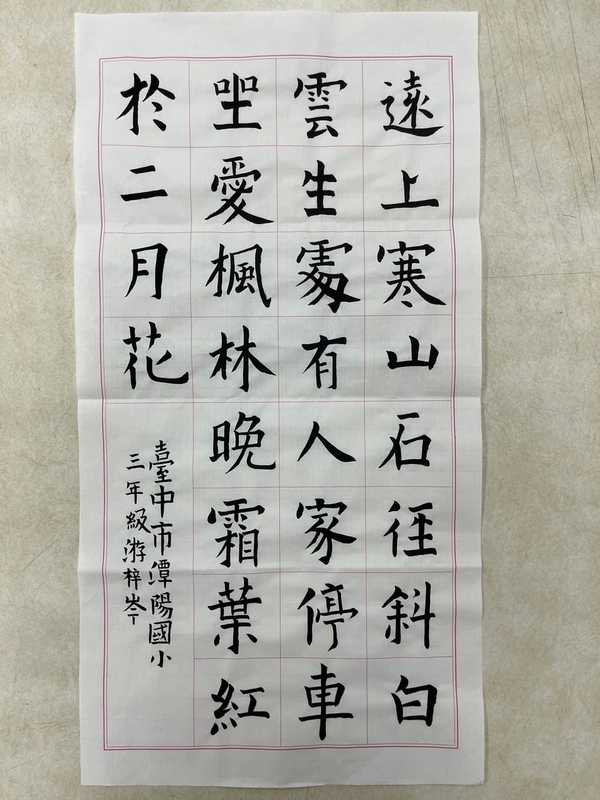 遠上寒山石徑斜白
雲生處有人家停車
坐愛楓林晚霜葉紅
於二月花
臺中市潭陽國小
三年級游梓岑